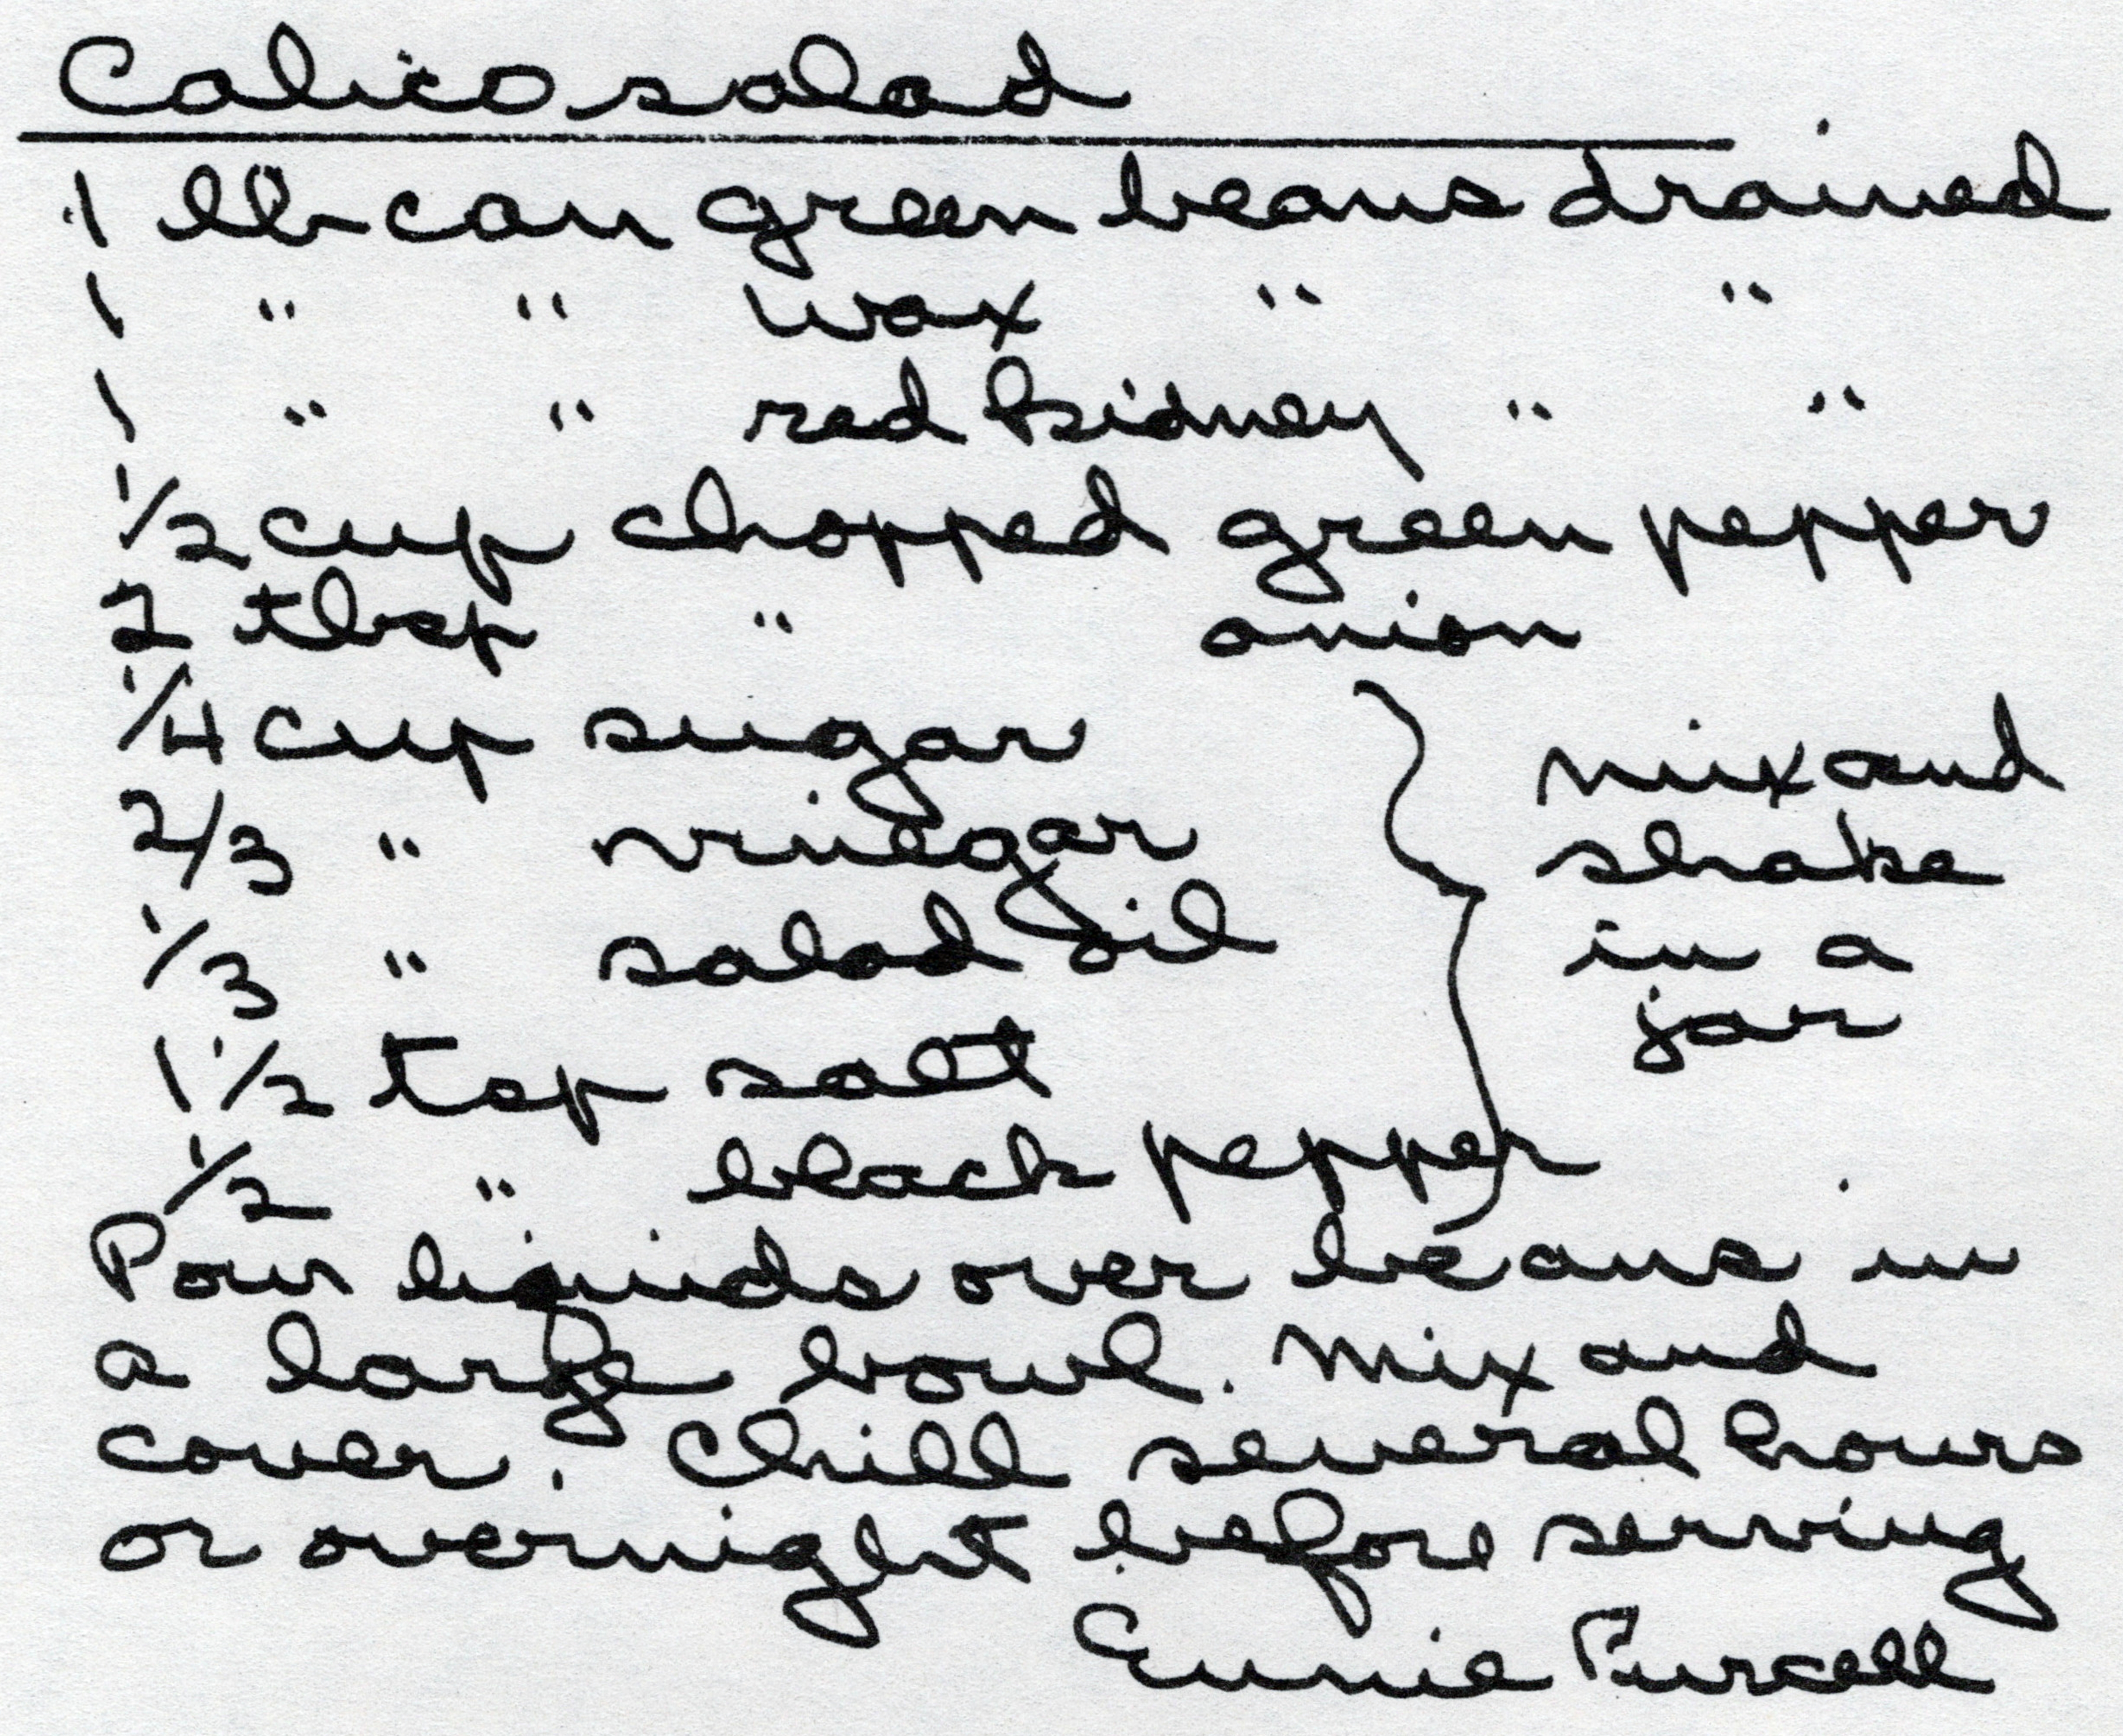 Calico salad
1 lb can green beans drained
1 " " wax " "
1 " " red kidney " "
1/2 cup chopped green pepper
2 tbsp " onion
1/4 cup sugar
2/3 " vinegar
1/3 " salad oil
1 1/2 tsp salt
1/2 " black pepper
mix and
shake
in a
jar
Pour liquids over beans in
a large bowl. Mix and
cover. Chill several hours
or overnight before serving
Eunie Purcell